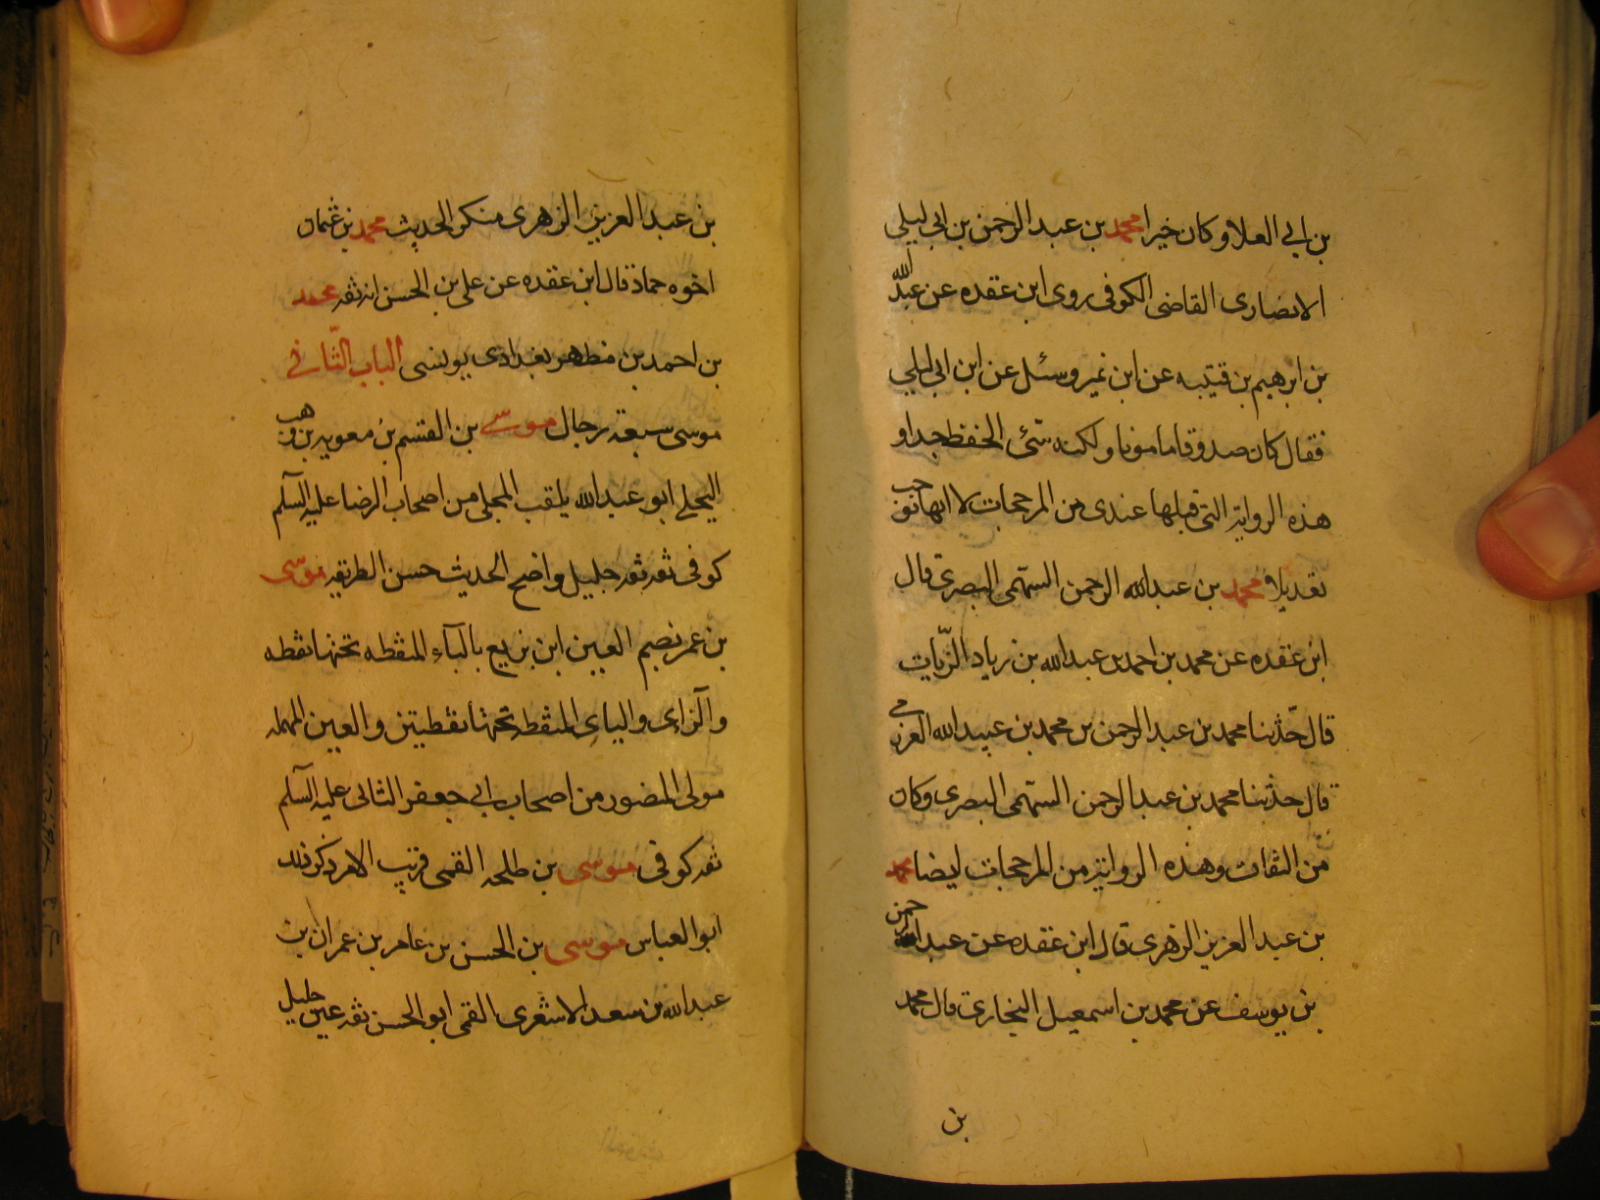 بن ابي العلا وكان خيرا محمد بن عبد الرحمن بن ابي ليلى
الانصارى القاضى الكوفى روى ابن عقده عن عبد الله
بن ابرهيم بن قتيبه عن ابن نمير وسئل عن ابن ابي ليلى
فقال كان صدوقا مامونا ولكنه سئى الحفظ جدا و
هذه الرواية التى قبلها عندى من المرجحات لا انها توجب
تعديلا و محمد بن عبد الله الرحمن السهمى البصرى قال
ابن عقده عن محمد بن احمد بن عبد الله بن زياد الزيات
قال حدثنا محمد بن عبد الرحمن بن محمد بن عبيد الله العزرمى
قال حدثنا محمد بن عبد الرحمن السهمى البصرى وكان
من الثقات وهذه الرواية من المرجحات ايضا محمد
بن عبد العزيز الزهرى قال ابن عقده عن عبد الرحمن
بن يوسف عن محمد بن اسمعيل البخارى قال محمد
بن
بن عبد العزيز الزهرى منكر الحديث محمد بن عثمان
اخوه حماد قال ابن عقده عن على بن الحسن انه ثقه محمد
بن احمد بن مطهر بغدادى يونسى الباب الثانى
موسى سبعة رجال موسى بن القسم بن معويه بن وهب
البجلى ابو عبد الله يلقب المجلى من اصحاب الرضا عليه السلم
كوفى ثقه ثقه جليل واضح الحديث حسن الطريقه موسى
بن عمر بضم العين ابن بزيع بالباء المنقطه تحتها نقطه
والزاى والياى المنقطه تحتها نقطيتن والعين المهمله
مولى المنصور من اصحاب ابي جعفر الثانى عليه السلم
ثقه كوفى موسى بن طلحه القمى قريب الامر ذكر ذلك
ابو العباس موسى بن الحسن بن عامر بن عمران بن
عبد الله بن سعد الاشعرى القمى ابو الحسن ثقه عين جليل